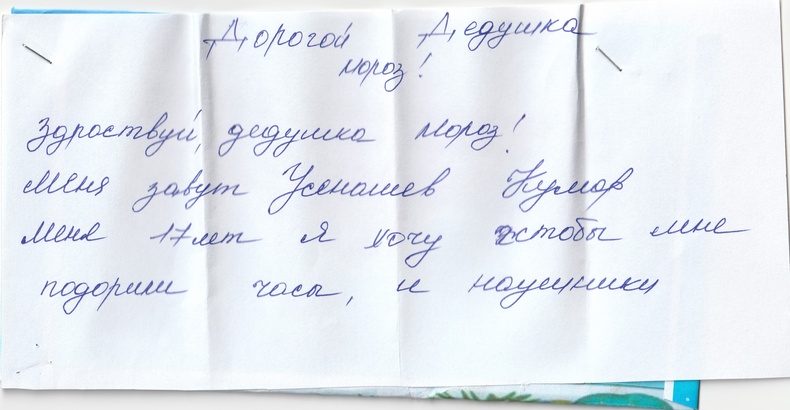 Дорогой Дедушка
мороз!
Здраствуй, дедушка мороз!
Меня завут Усенашев Кумар
мене 17 лет я хочу чтобы мне
подорили часы, и наушники